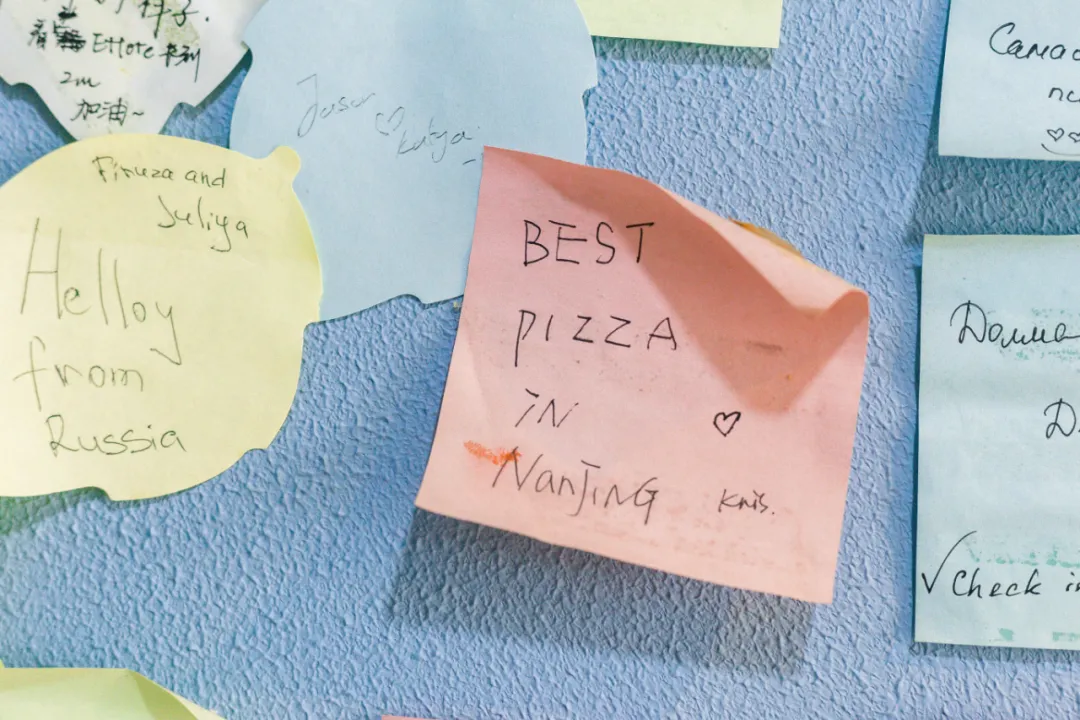 样子.
看 Ettore 来到
2m
加油~
Jason ♡ Katya
Firuza and
Juliya
Helloy
from
Russia
BEST
PIZZA
IN ♡
NANJING Kris.
♡♡
Даша
✓ Check in